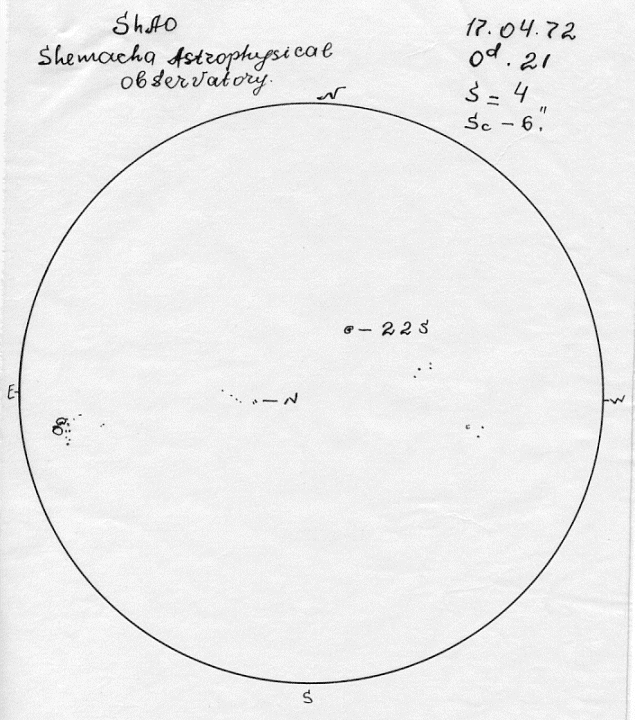 ShAO
Shemacha Astrophysical
observatory.
17.04.72
0d. 21
S = 4
Sc - 6".
N
- 22S
E
- N
W
S